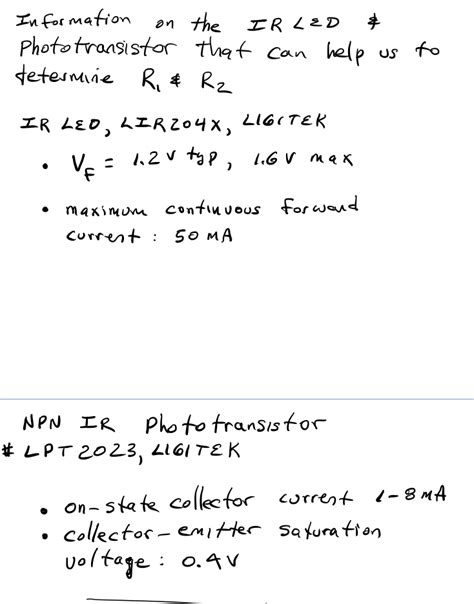 Information on the IR LED &
Phototransistor that can help us to
determine R1 & R2
IR LED, LIR204X, LIGITEK
• VF = 1.2V typ, 1.6V max
• maximum continuous forward
current : 50 mA
NPN IR Phototransistor
# LPT2023, LIGITEK
• on-state collector current 1-8mA
• collector-emitter saturation
voltage : 0.4V